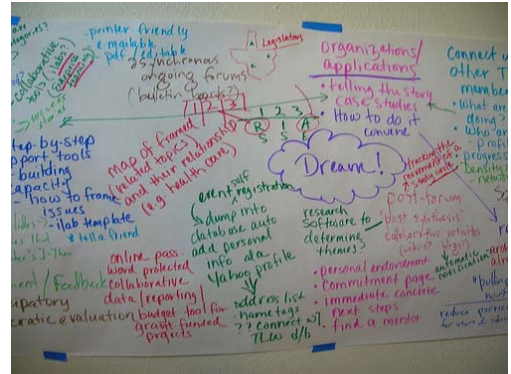 -printer friendly
e-mailable
pdf/editable
collaborative
tools (ilabs?)
ongoing forums
Legislators
organizations/
applications
• telling the story
case studies
• How to do it
convene
Connect w
other T
member
• What are
doing?
• Who are
- profil
• progress
1 2 3
1 2 3
R I A
S S S
success
stories
step-by-step
support tools
- building
capacity
- how to frame
issues
- ilab template
* tell a friend
map of framed
(related topics)
and their relationship
(e.g. health care)
Dream!
event self
registration
dump into
database auto
add personal
info ala
Yahoo profile
address list
nametags
?? connect w/
TLW d/b
research
software to
determine
themes?
post-forum
"post synthesis"
collaborative activities
(wikis? blogs?)
automatic
notification
• personal endorsement
• commitment page
• immediate concrete
next steps
• find a mentor
online pass
word protected
collaborative
data/reporting/
budget tool for
grant funded
projects
/Feedback
evaluation
"polling
reduce